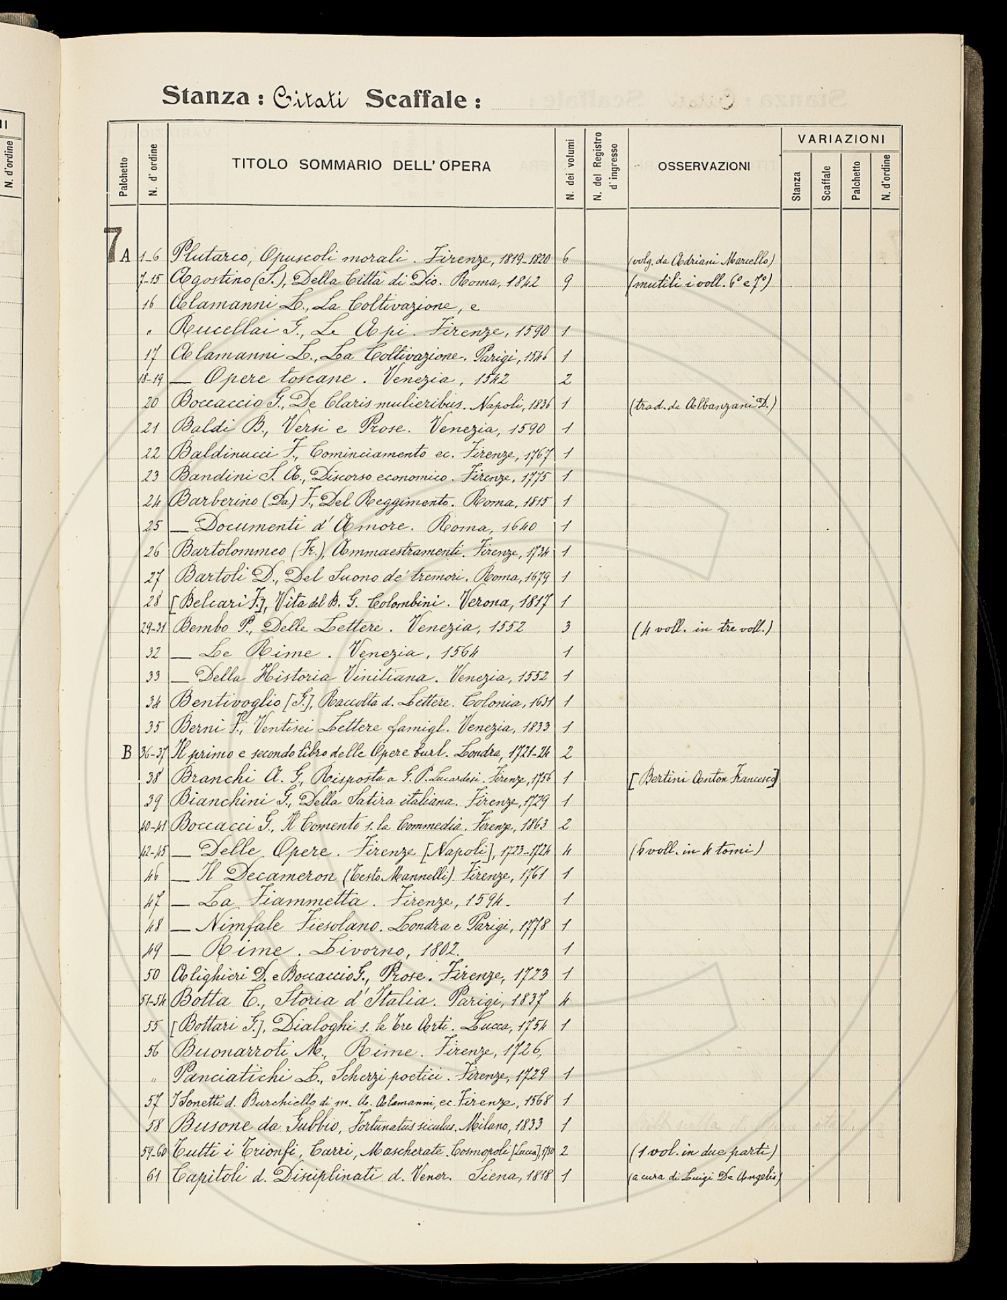 Stanza: Citati Scaffale:
Palchetto N. d'ordine TITOLO SOMMARIO DELL'OPERA N. dei volumi N. del Registro d'ingresso OSSERVAZIONI VARIAZIONI
Stanza Scaffale Palchetto N. d'ordine
N. d'ordine
7
A 1-6 Plutarco, Opuscoli morali. Firenze, 1819-1820 6 (volg. da Adriani Marcello)
7-15 Agostino (S.), Della Città di Dio. Roma, 1842 9 (mutili i voll. 6° e 7°)
16 Alamanni L., La Coltivazione, e
" Rucellai G., Le Api. Firenze, 1590 1
17 Alamanni L., La Coltivazione. Parigi, 1546 1
18-19 — Opere toscane. Venezia, 1542 2
20 Boccaccio G., De Claris mulieribus. Napoli, 1836 1 (trad. da Albanzani D.)
21 Baldi B., Versi e Prose. Venezia, 1590 1
22 Baldinucci F., Cominciamento ec. Firenze, 1767 1
23 Bandini S. A., Discorso economico. Firenze, 1775 1
24 Barberino (Da) F., Del Reggimento. Roma, 1815 1
25 — Documenti d'Amore. Roma, 1640 1
26 Bartolommeo (Fr.), Ammaestramenti. Firenze, 1734 1
27 Bartoli D., Del Suono de' tremori. Roma, 1679 1
28 [Belcari F.], Vita del B. G. Colombini. Verona, 1817 1
29-31 Bembo P., Delle Lettere. Venezia, 1552 3 (4 voll. in tre voll.)
32 — Le Rime. Venezia, 1564 1
33 — Della Historia Vinitiana. Venezia, 1552 1
34 Bentivoglio [G.], Raccolta d. Lettere. Colonia, 1631 1
35 Berni F., Ventisei Lettere famigl. Venezia, 1833 1
B 36-37 Il primo e secondo libro delle Opere burl. Londra, 1721-24 2
38 Branchi A. G., Risposta a G. P. Lucardesi. Firenze, 1756 1 [Bertini Anton Francesco]
39 Bianchini G., Della Satira italiana. Firenze, 1729 1
40-41 Boccacci G., Il Comento s. la Commedia. Firenze, 1863 2
42-45 — Delle Opere. Firenze [Napoli], 1723-1724 4 (6 voll. in 4 tomi)
46 — Il Decameron (Testo Mannelli) Firenze, 1761 1
47 — La Fiammetta. Firenze, 1594. 1
48 — Nimfale Fiesolano. Londra e Parigi, 1778 1
49 — Rime. Livorno, 1802. 1
50 Alighieri D. e Boccaccio G., Prose. Firenze, 1723 1
51-54 Botta C., Storia d'Italia. Parigi, 1837 4
55 [Bottari G.], Dialoghi s. le Tre Arti. Lucca, 1754 1
56 Buonarroti M., Rime. Firenze, 1726.
" Panciatichi L., Scherzi poetici. Firenze, 1729 1
57 I Sonetti d. Burchiello di m. A. Alamanni, ec. Firenze, 1568 1
58 Busone da Gubbio, Fortunatus siculus. Milano, 1833 1
59-60 Tutti i Trionfi, Carri, Mascherate. Cosmopoli [Lucca], 1750 2 (1 vol. in due parti)
61 Capitoli d. Disciplinati d. Vener. Siena, 1818 1 (a cura di Luigi De Angelis)